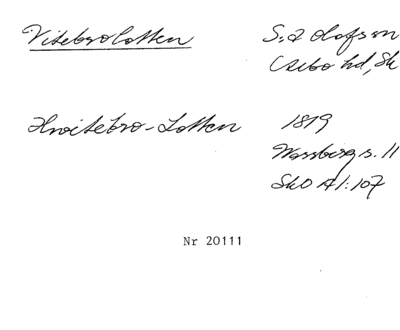 Vitebrolotten S:t Olofs sn
Osebo hd, Sk
Hvitebro-Lotten 1819
Wassberg s. 11
SkO A1:107
Nr 20111